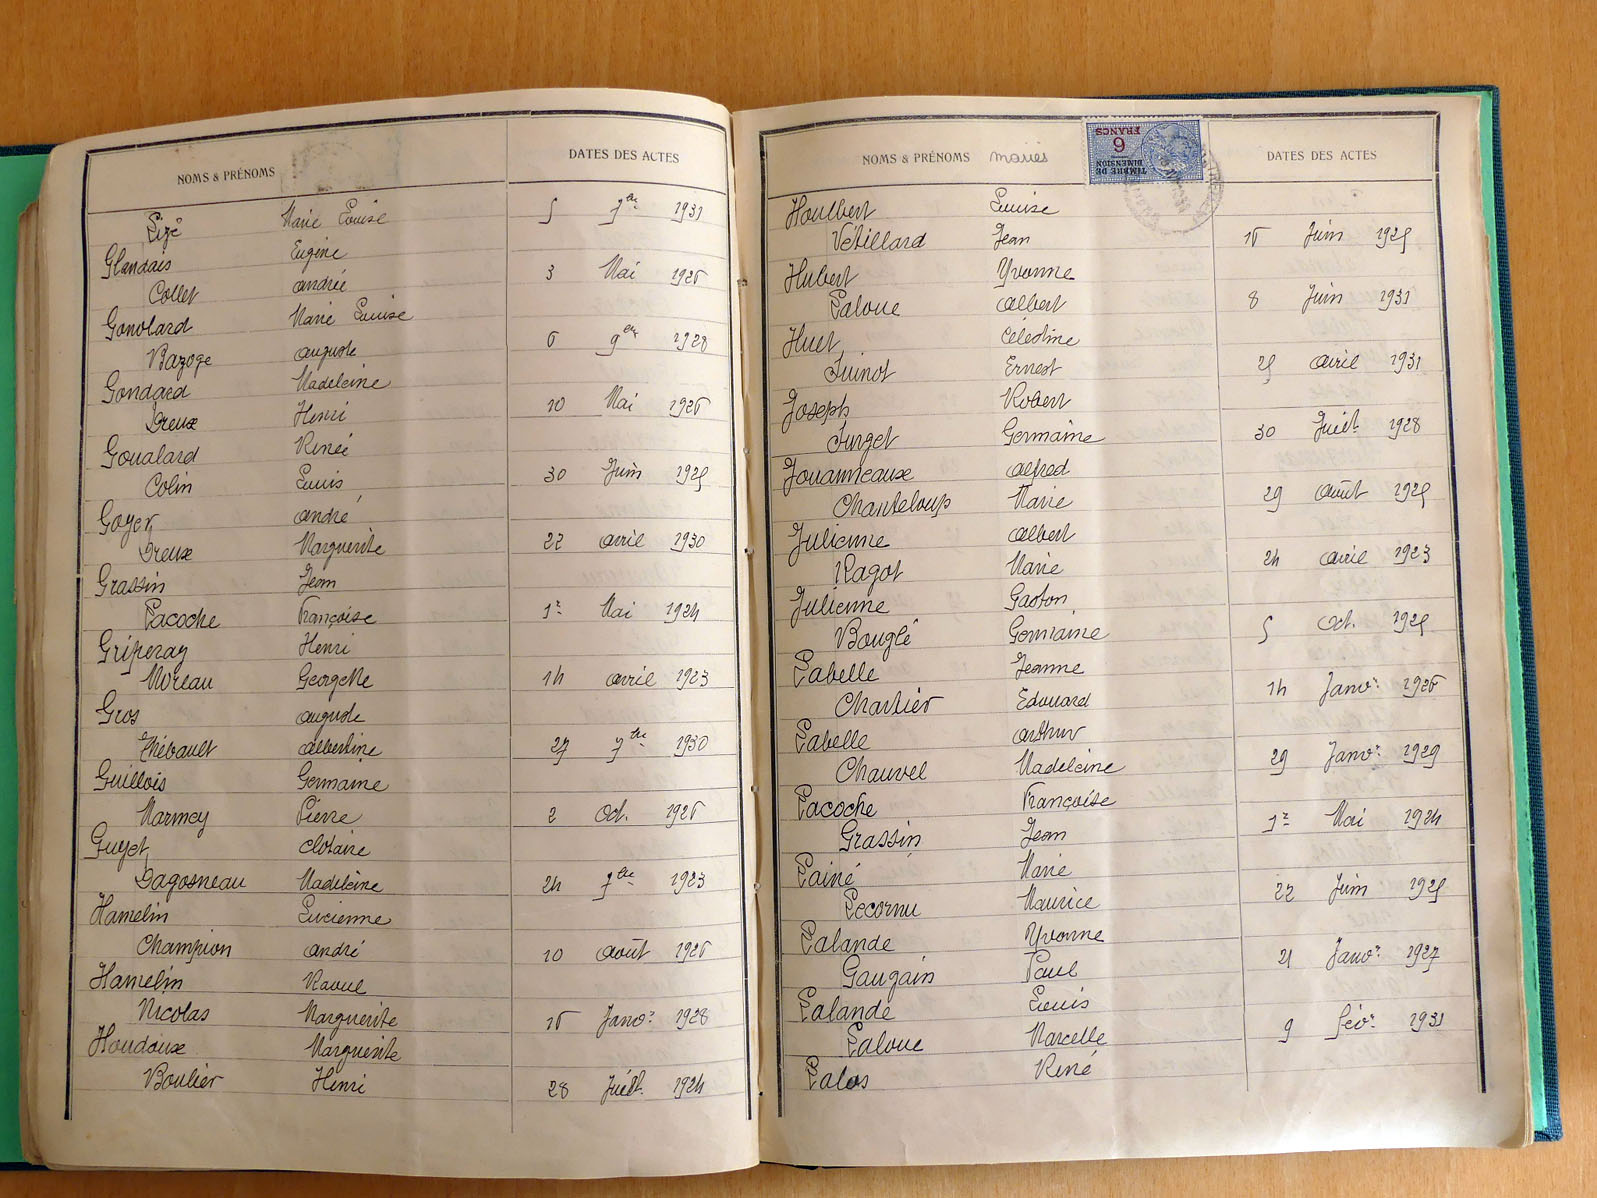 NOMS & PRÉNOMS
DATES DES ACTES
Lizé Marie Louise 5 7bre 1931
Glandais Eugène
Collet andré 3 Mai 1926
Gondard Marie Louise
Bazoge auguste 6 9bre 1928
Gondard Madeleine
Dreux Henri 10 Mai 1926
Goualard Renée
Colin Louis 30 Juin 1925
Goyer andré
Dreux Marguerite 22 avril 1930
Grassin Jean
Lacoche Françoise 1er Mai 1924
Griperay Henri
Moreau Georgette 14 avril 1923
Gros auguste
Thébault albertine 27 7bre 1930
Guillois Germaine
Marmey Pierre 2 Oct. 1926
Guyet Clotaire
Dagosneau Madeleine 24 7bre 1923
Hamelin Lucienne
Champion andré 10 août 1926
Hamelin Raoul
Nicolas Marguerite 16 Janvr 1928
Houdoux Marguerite
Boulier Henri 28 Juillt 1924
NOMS & PRÉNOMS mariés
DATES DES ACTES
TIMBRE DE DIMENSION
6 FRANCS
Houlbert Louise
Vétillard Jean 16 Juin 1925
Hubert Yvonne
Laloue albert 8 Juin 1931
Huet Célestine
Juinot Ernest 25 avril 1931
Joseph Robert
Furget Germaine 30 Juillt 1928
Jouanneaux alfred
Chanteloup Marie 29 août 1925
Julienne albert
Ragot Marie 24 avril 1923
Julienne Gaston
Bouglé Germaine 5 Oct. 1925
Labelle Jeanne
Chartier Edouard 14 Janvr 1926
Labelle arthur
Chauvel Madeleine 29 Janvr 1929
Lacoche Françoise
Grassin Jean 1er Mai 1924
Lainé Marie
Lecornu Maurice 22 Juin 1925
Lalande Yvonne
Gaugain Paul 21 Janvr 1927
Lalande Louis
Laloue Marcelle 9 Févr 1931
Lalos René